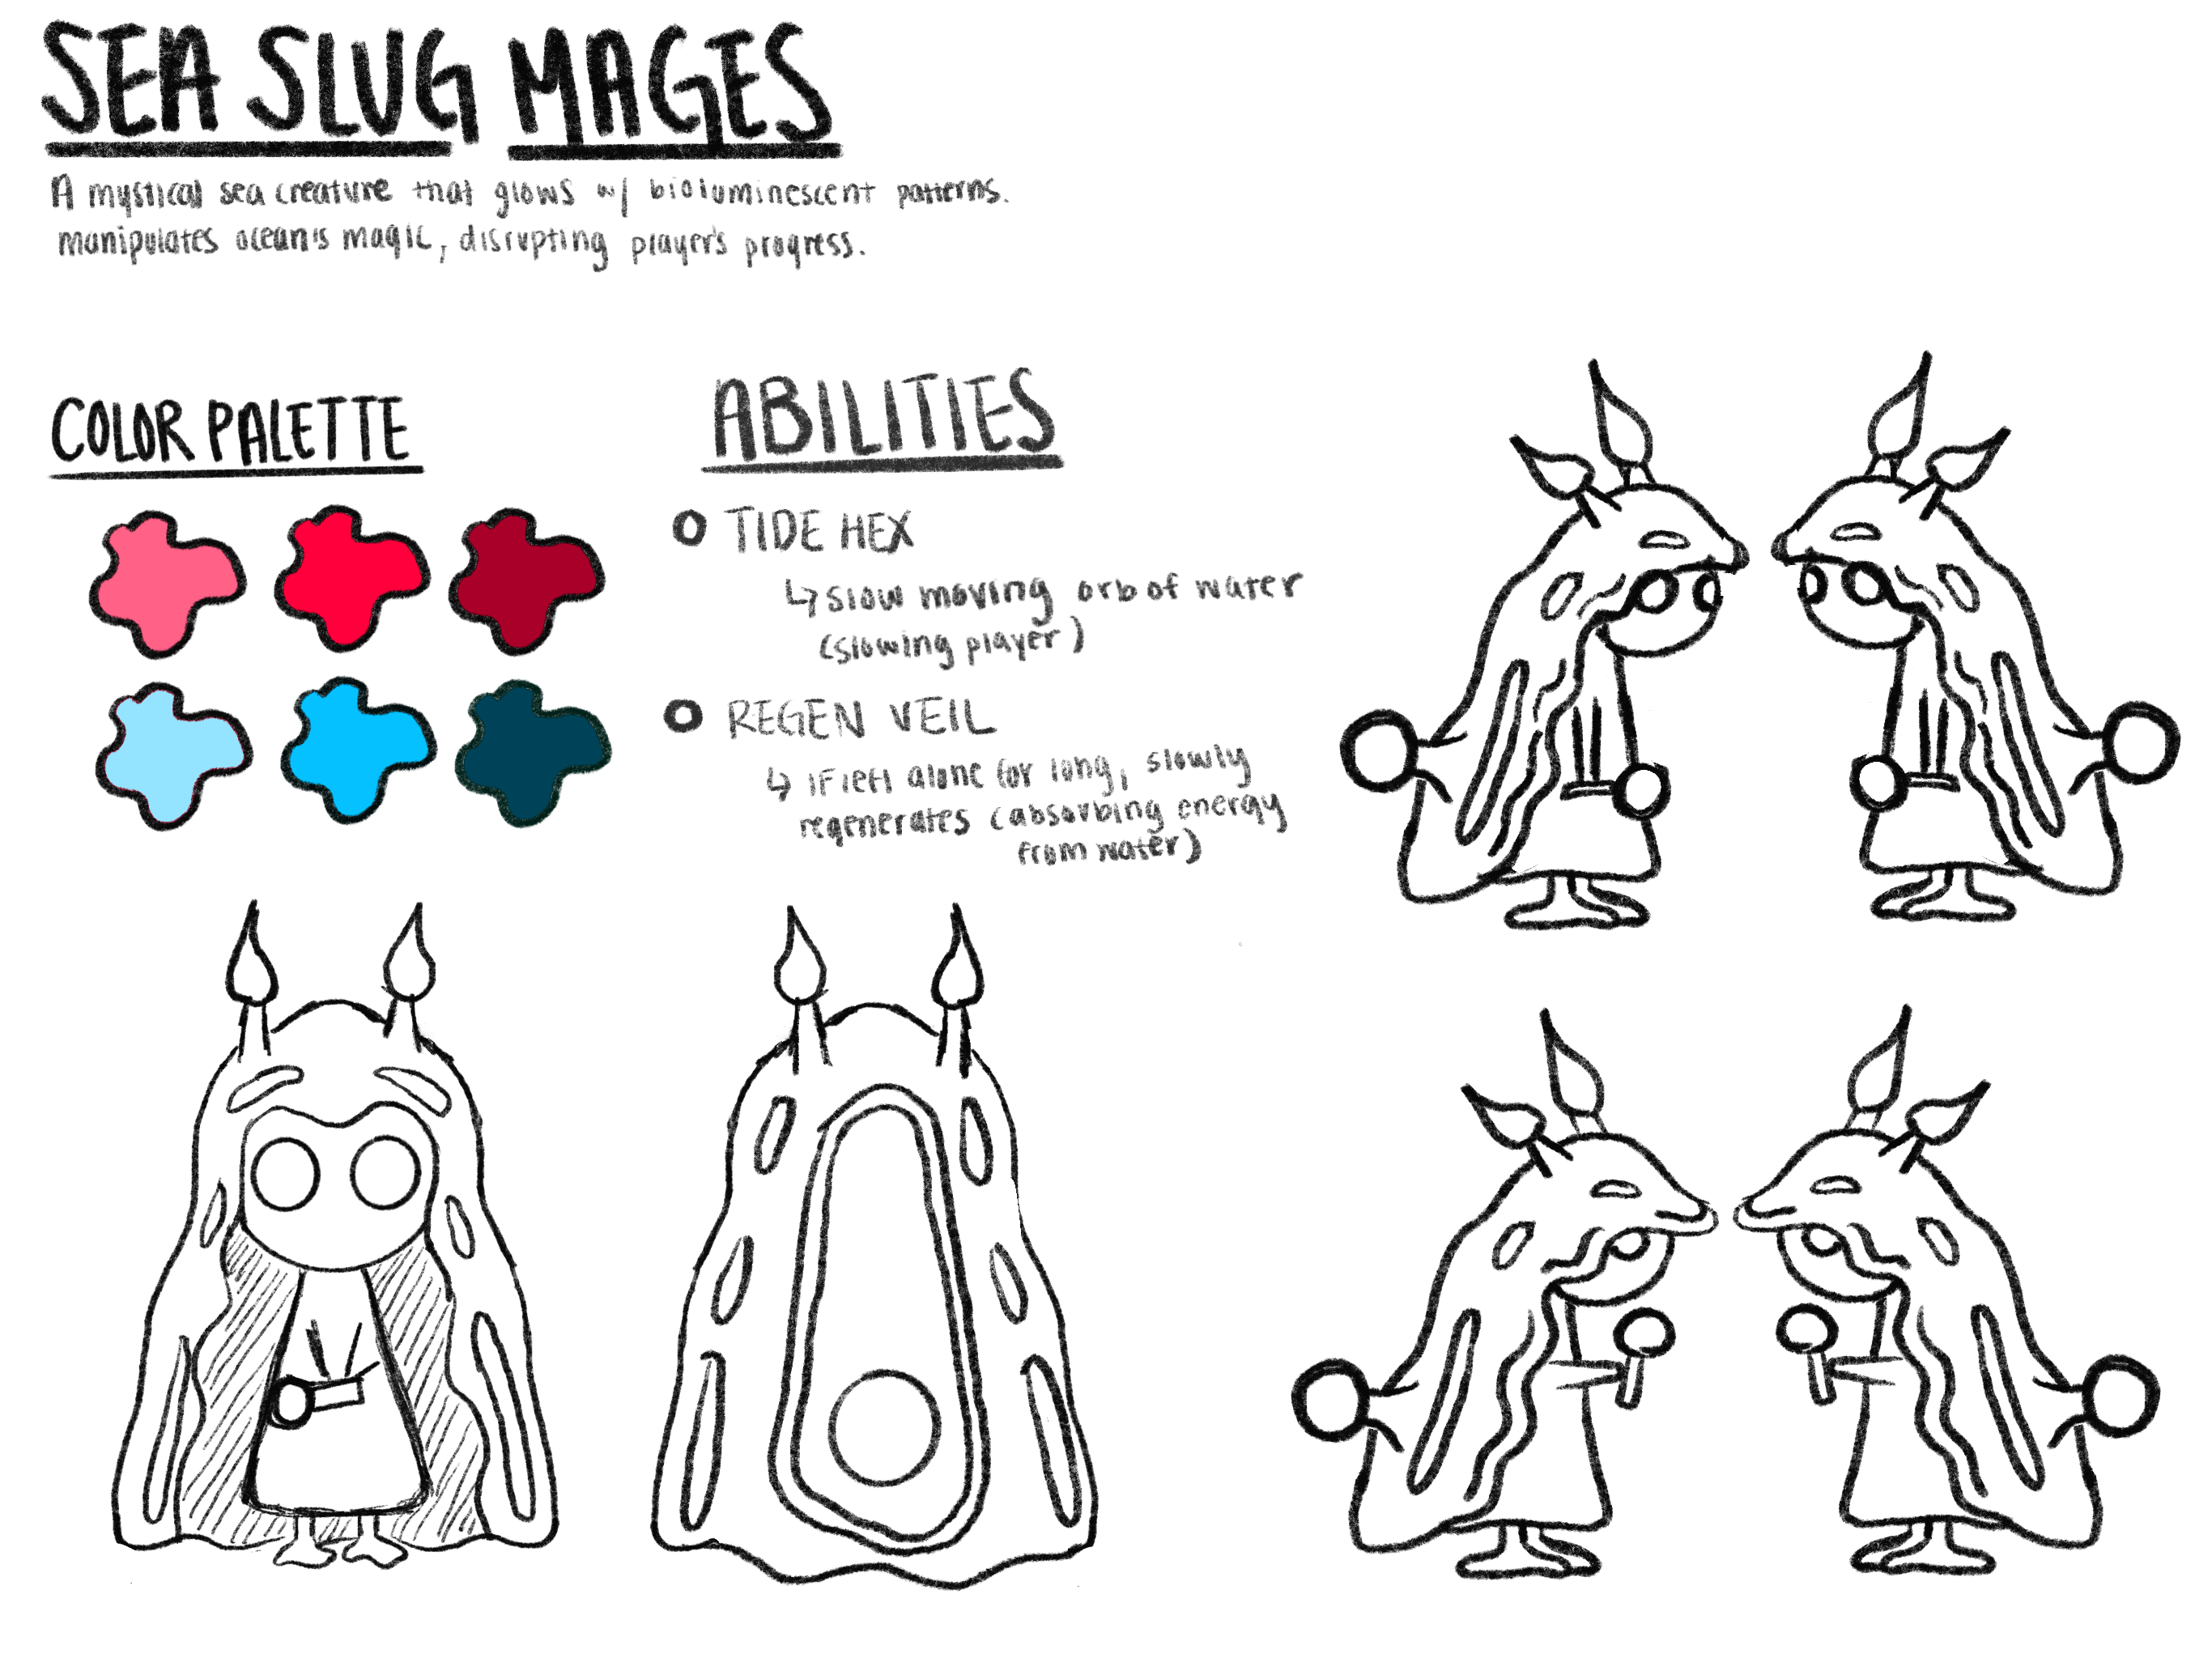 SEA SLUG MAGES
A mystical sea creature that glows w/ bioluminescent patterns.
manipulates ocean's magic, disrupting player's progress.
COLOR PALETTE
ABILITIES
O TIDE HEX
↳ slow moving orb of water
(slowing player)
O REGEN VEIL
↳ if left alone for long, slowly
regenerates (absorbing energy
from water)